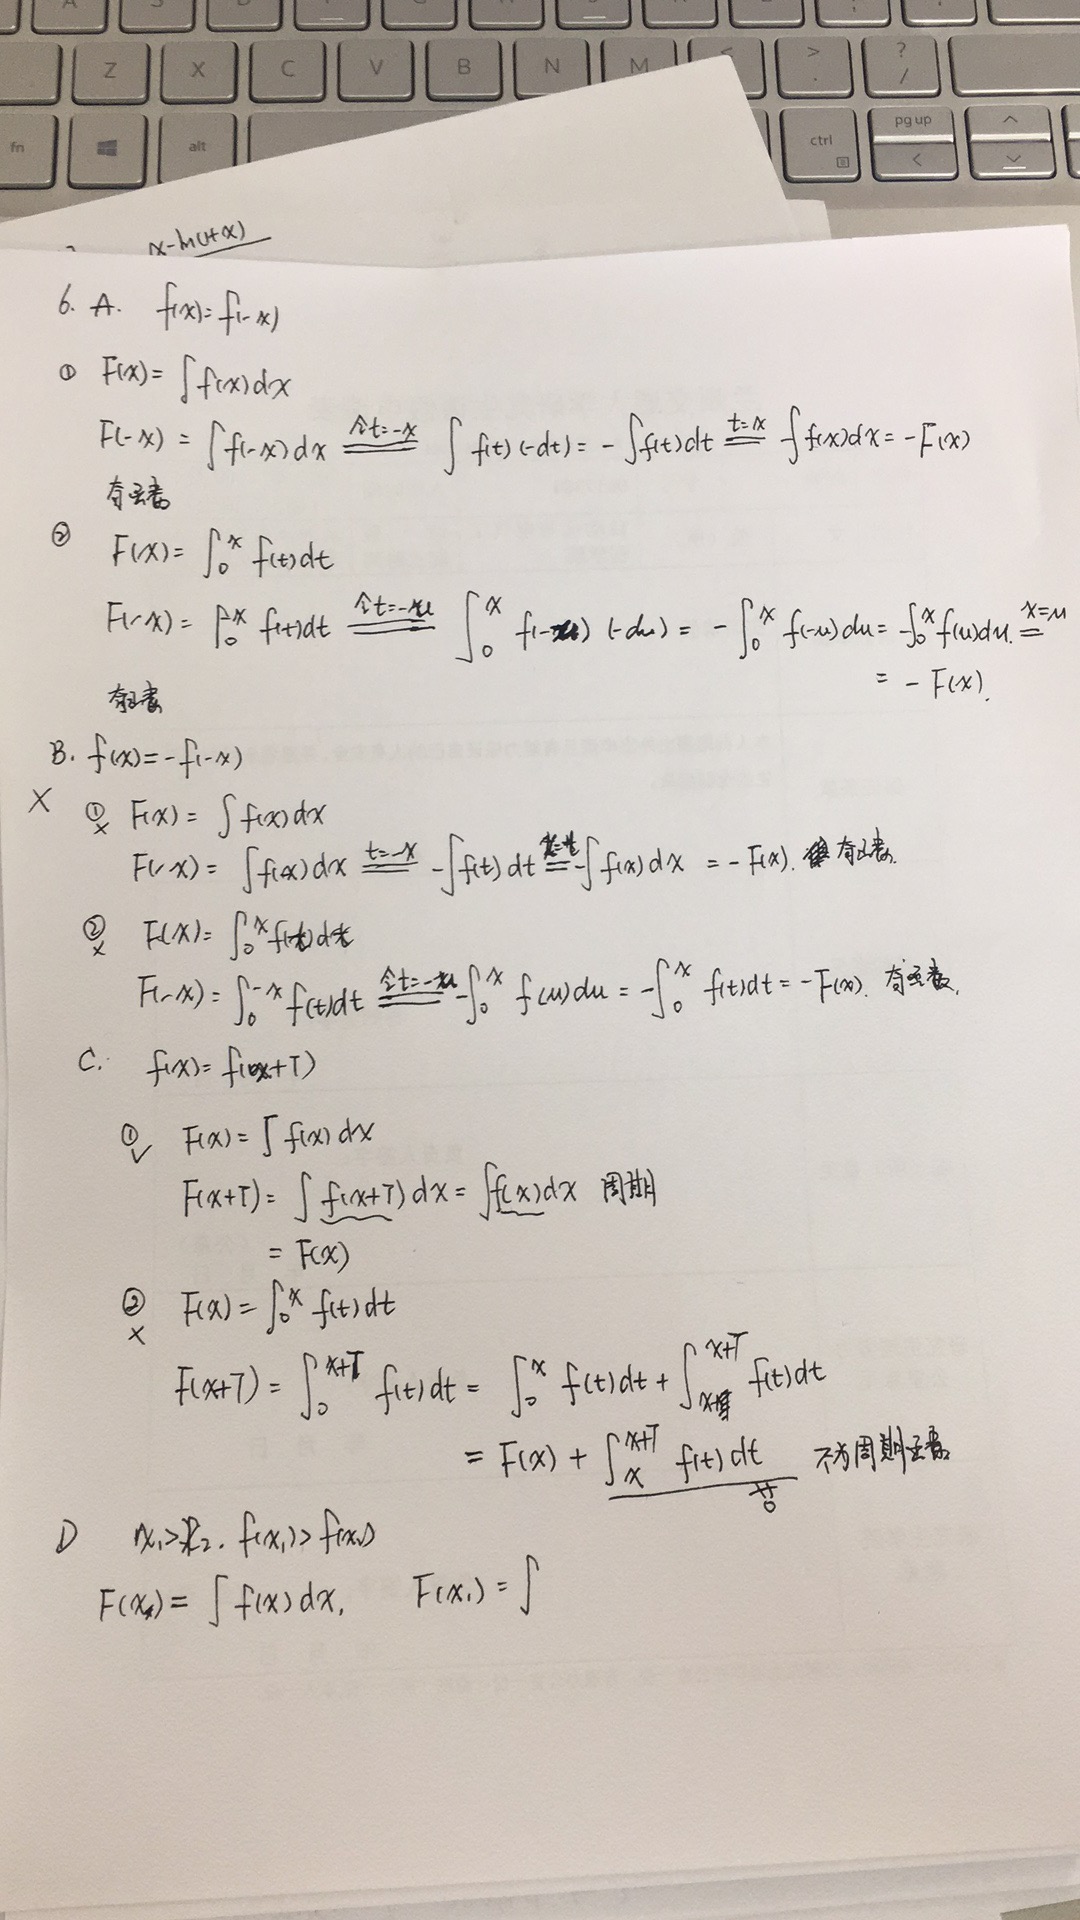 A S D
Z X C V B N M < > . ? /
fn alt ctrl pg up <
x-ln(1+x)
6. A. f(x)=f(-x)
① F(x)=∫f(x)dx
F(-x)=∫f(-x)dx 令t=-x ∫f(t)(-dt)=-∫f(t)dt t=x -∫f(x)dx=-F(x)
奇函数
② F(x)=∫₀ˣ f(t)dt
F(-x)=∫₀⁻ˣ f(t)dt 令t=-u ∫₀ˣ f(-u)(-du)=-∫₀ˣ f(-u)du=-∫₀ˣ f(u)du x=u
=-F(x).
奇函数
B. f(x)=-f(-x)
X ① x F(x)=∫f(x)dx
F(-x)=∫f(-x)dx t=-x -∫f(t)dt x=t -∫f(x)dx=-F(x). 奇函数.
② x F(x)=∫₀ˣ f(t)dt
F(-x)=∫₀⁻ˣ f(t)dt 令t=-u -∫₀ˣ f(u)du=-∫₀ˣ f(t)dt=-F(x). 奇函数.
C. f(x)=f(x+T)
① √ F(x)=∫f(x)dx
F(x+T)=∫f(x+T)dx=∫f(x)dx 周期
=F(x)
② x F(x)=∫₀ˣ f(t)dt
F(x+T)=∫₀ˣ⁺ᵀ f(t)dt=∫₀ˣ f(t)dt+∫ₓˣ⁺ᵀ f(t)dt
=F(x)+∫ₓˣ⁺ᵀ f(t)dt 不为周期函数
≠0
D x₁>x₂. f(x₁)>f(x₂)
F(x)=∫f(x)dx, F(x₁)=∫